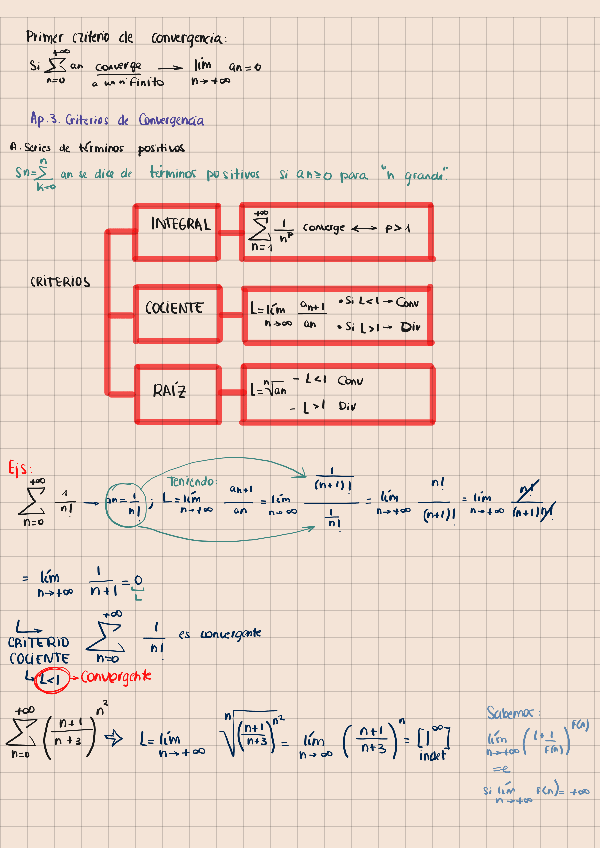 Primer criterio de convergencia:
Si ∑_{n=0}^{+∞} an converge a un nº finito → lím_{n→+∞} an = 0
Ap.3. Criterios de Convergencia
A. Series de términos positivos
Sn = ∑_{k=0}^{n} an se dice de términos positivos si an ≥ 0 para "n grande".
CRITERIOS
INTEGRAL
∑_{n=1}^{+∞} 1/n^p converge ↔ p > 1
COCIENTE
L = lím_{n→∞} a_{n+1}/an • Si L<1 → Conv
• Si L>1 → Div
RAÍZ
L = ⁿ√an - L<1 Conv
- L>1 Div
Ejs:
∑_{n=0}^{+∞} 1/n! → an = 1/n! ; Teniendo: L = lím_{n→+∞} an+1/an = lím_{n→∞} (1/(n+1)!)/(1/n!) = lím_{n→+∞} n!/(n+1)! = lím_{n→+∞} n!/(n+1)n!
= lím_{n→+∞} 1/(n+1) = 0
L
CRITERIO COCIENTE ∑_{n=0}^{+∞} 1/n! es convergente
L<1 → Convergente
∑_{n=0}^{+∞} ((n+1)/(n+3))^{n²} ⇒ L = lím_{n→+∞} ⁿ√(((n+1)/(n+3))^{n²}) = lím_{n→∞} ((n+1)/(n+3))^n = [1^∞] indet
Sabemos:
lím_{n→+∞} (1+1/F(n))^{F(n)}
= e
Si lím_{n→+∞} F(n) = +∞